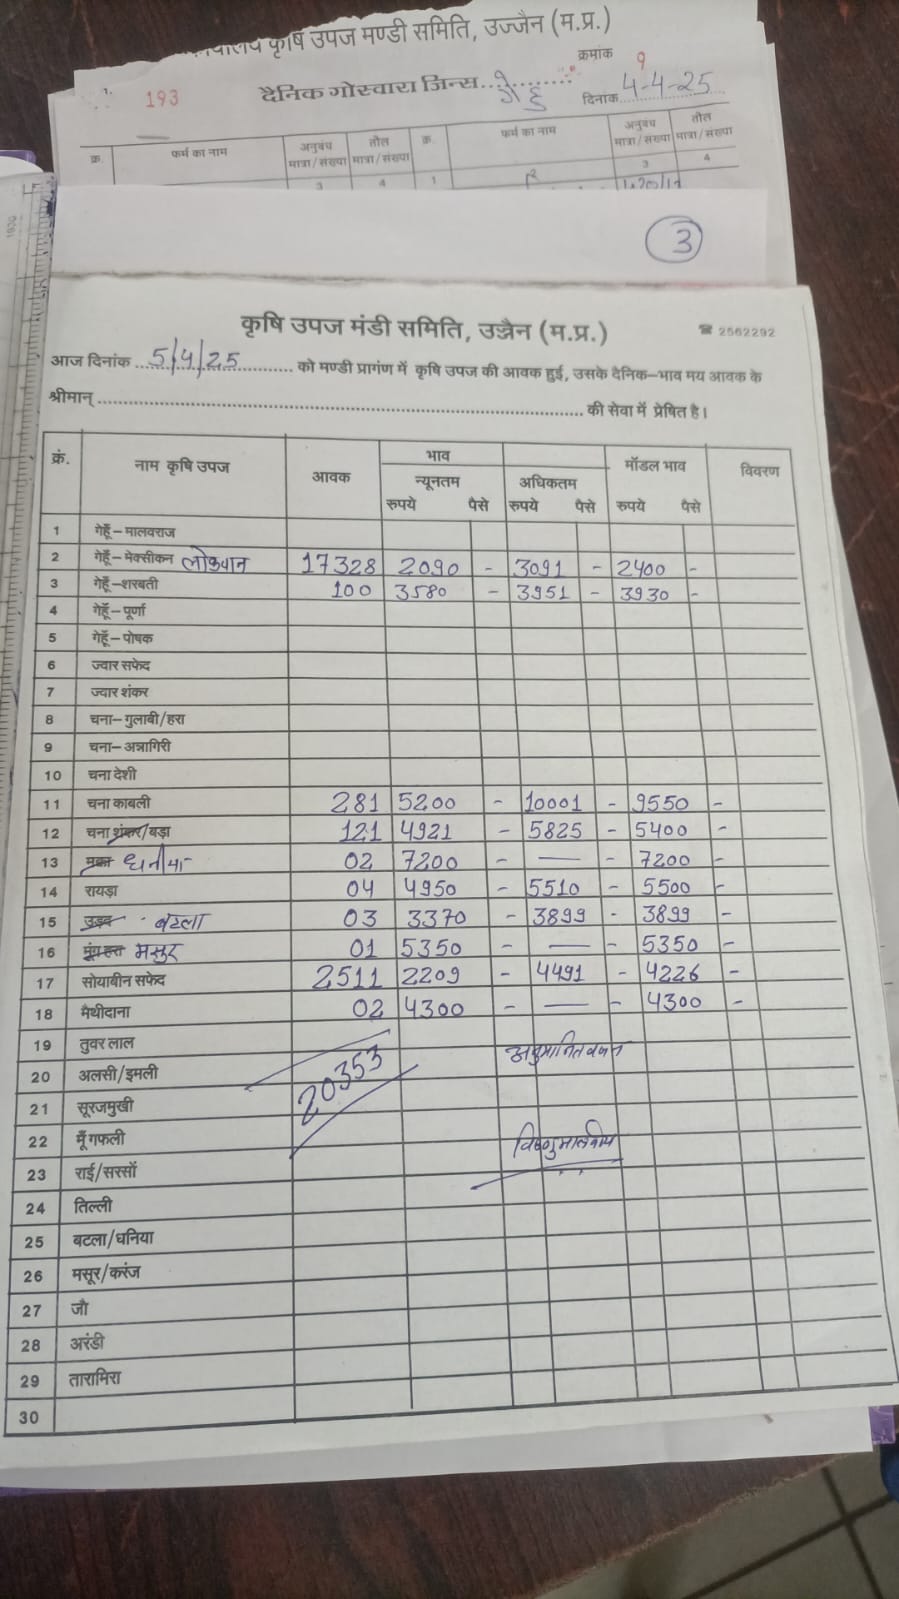 कार्यालय कृषि उपज मण्डी समिति, उज्जैन (म.प्र.)
क्रमांक 9
193 दैनिक गोस्वारा जिन्स गेहु दिनांक 4-4-25
क्र. फर्म का नाम अनुबंध मात्रा/संख्या तौल मात्रा/संख्या क्र. फर्म का नाम अनुबंध मात्रा/संख्या तौल मात्रा/संख्या
3 4 1 3 4
3
कृषि उपज मंडी समिति, उज्जैन (म.प्र.) ☎ 2562292
आज दिनांक 5/4/25 को मण्डी प्रागंण में कृषि उपज की आवक हुई, उसके दैनिक-भाव मय आवक के
श्रीमान् की सेवा में प्रेषित है।
क्रं. नाम कृषि उपज आवक भाव मॉडल भाव विवरण
न्यूनतम अधिकतम
रुपये पैसे रुपये पैसे रुपये पैसे
1 गेहूँ-मालवराज
2 गेहूँ-मेक्सीकन लोकवान 17328 2090 - 3091 - 2400 -
3 गेहूँ-शरबती 100 3580 - 3951 - 3930 -
4 गेहूँ-पूर्णा
5 गेहूँ-पोषक
6 ज्वार सफेद
7 ज्वार शंकर
8 चना-गुलाबी/हरा
9 चना-अन्नागिरी
10 चना देशी
11 चना काबली 281 5200 - 10001 - 9550 -
12 चना शंकर/बड़ा 121 4921 - 5825 - 5400 -
13 मक्का धनीया 02 7200 - — - 7200 -
14 रायड़ा 04 4950 - 5510 - 5500 -
15 उड़द बटला 03 3370 - 3899 - 3899 -
16 मूंग हरा मसुर 01 5350 - — - 5350 -
17 सोयाबीन सफेद 2511 2209 - 4491 - 4226 -
18 मैथीदाना 02 4300 - — - 4300 -
19 तुवर लाल
अनुमानित वजन
20 अलसी/इमली
20353
21 सूरजमुखी
22 मूँगफली
23 राई/सरसों
24 तिल्ली
25 बटला/धनिया
26 मसूर/करंज
27 जौ
28 अरंडी
29 तारामिरा
30